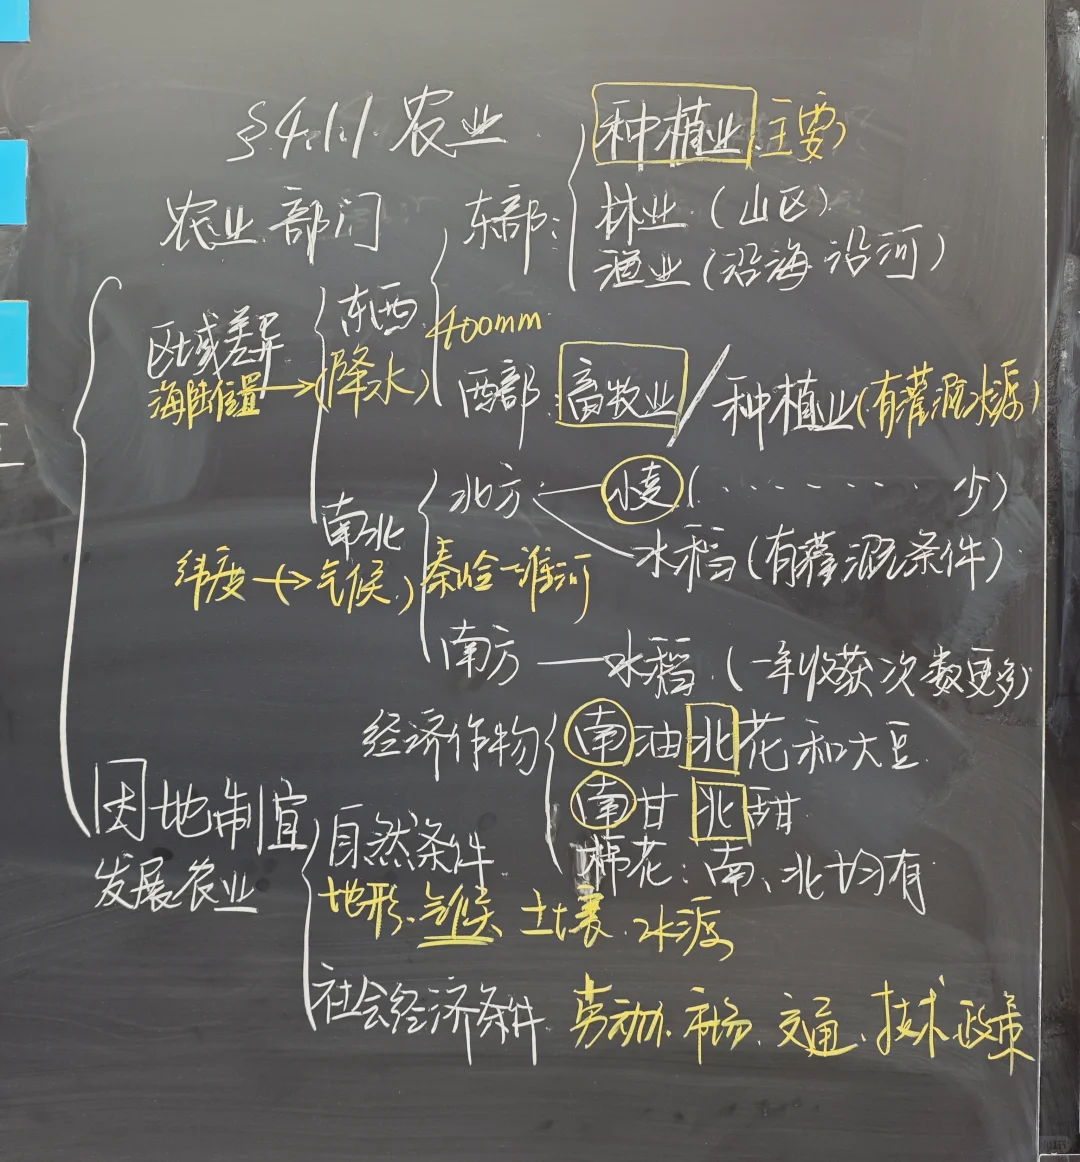 §4.1.1 农业
种植业 主要
农业部门 东部:
林业（山区）
渔业（沿海 沿河）
区域差异 东西 400mm
海陆位置→（降水）
西部：畜牧业/种植业（有灌溉水源）
北方 小麦（........少）
水稻（有灌溉条件）
南北
纬度→气候） 秦岭-淮河
南方—水稻.（一年收获次数更多）
经济作物 南油北花和大豆
南甘北甜
棉花：南、北均有
因地制宜
发展农业
自然条件
地形.气候.土壤.水源
社会经济条件 劳动力.市场.交通.技术.政策